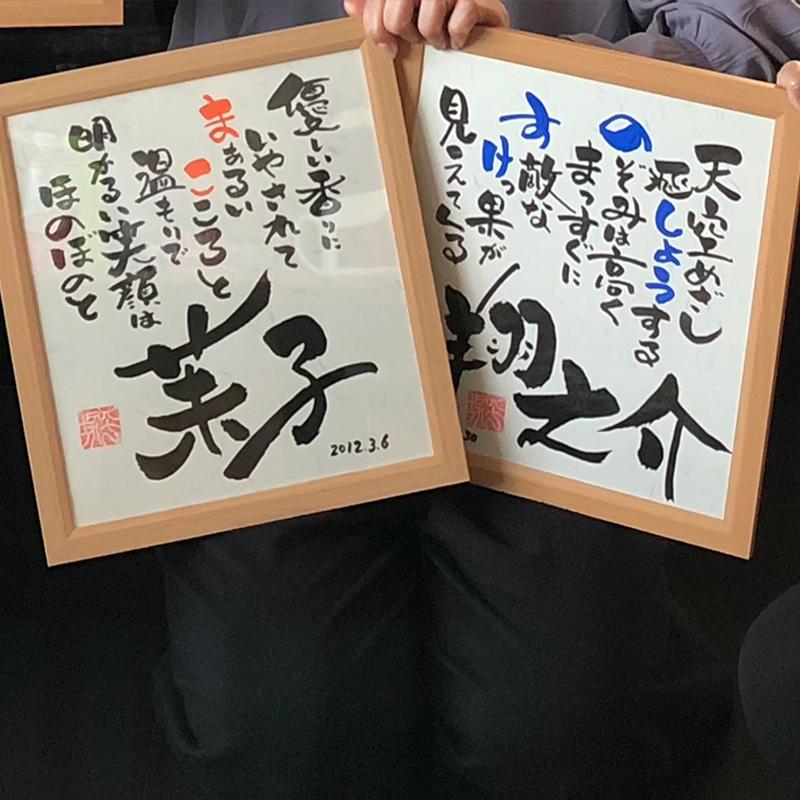 天空めざし
飛しょうする
のぞみは高く
まっすぐに
す敵な
けっ果が
見えてくる
翔之介
30
優しい香りに
いやされて
まあるい
こころと
温もりで
明かるい笑顔は
ほのぼのと
茉子
2012.3.6